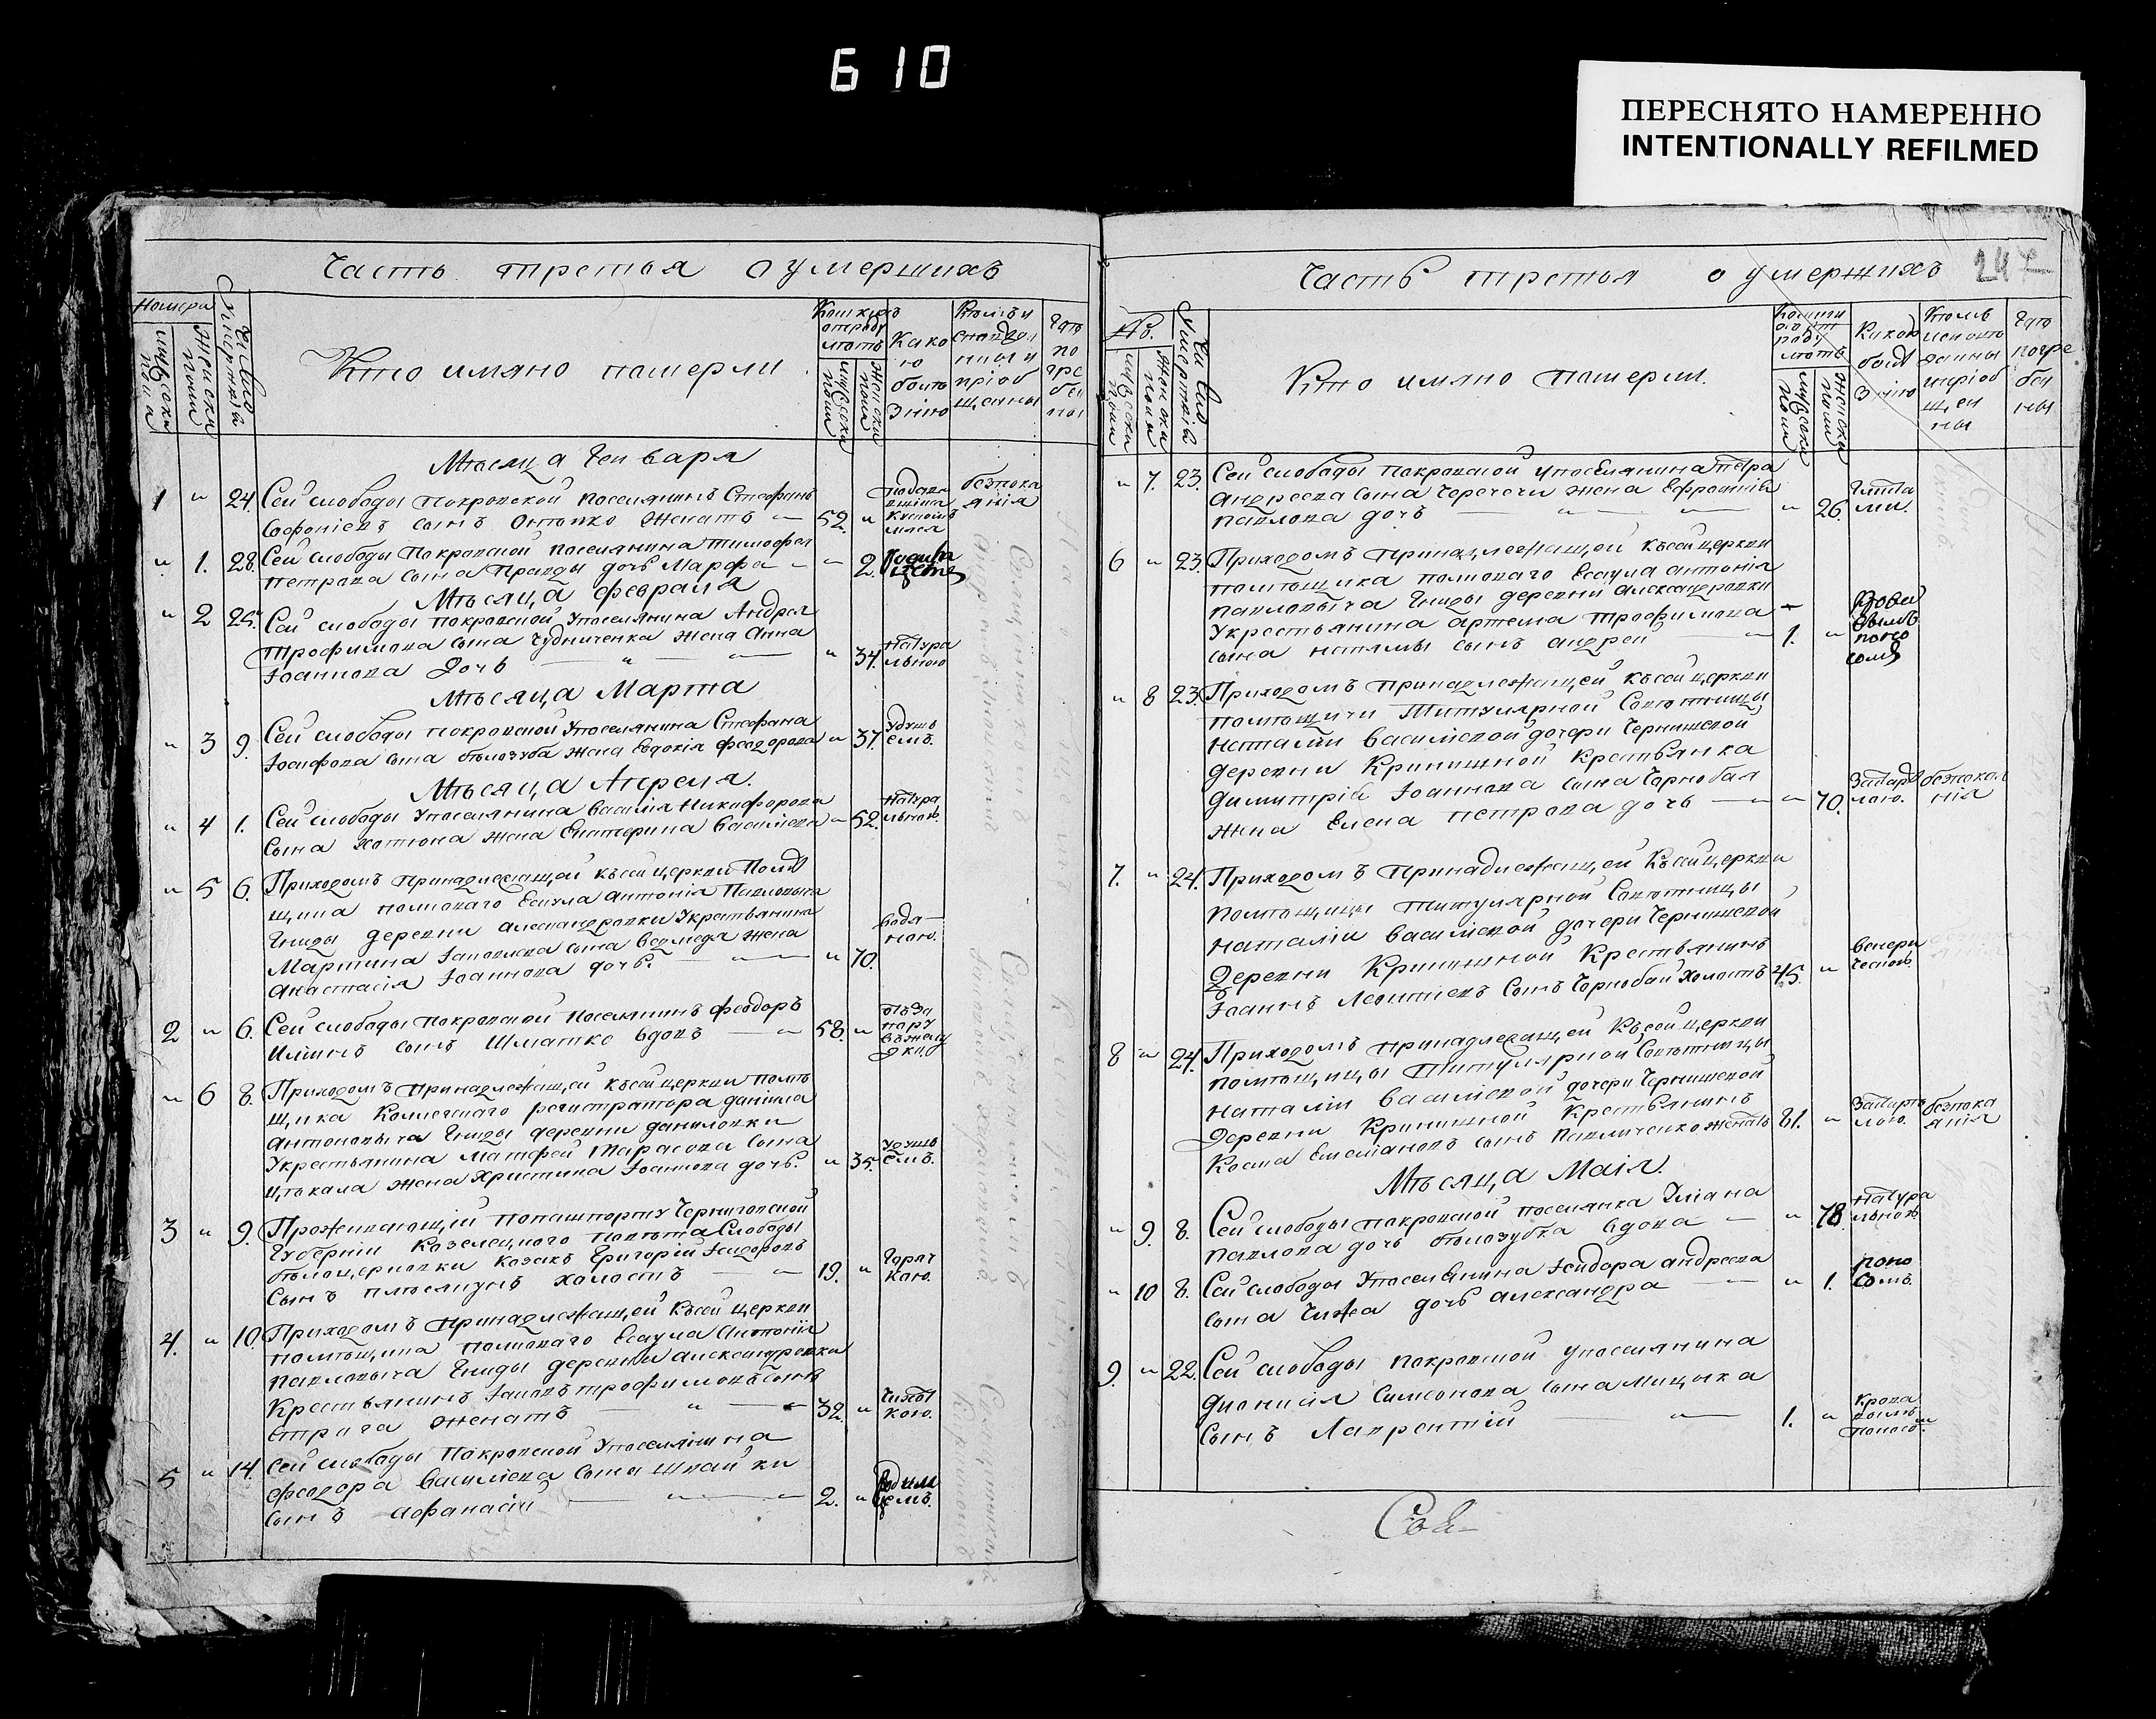 610
ПЕРЕСНЯТО НАМЕРЕННО
INTENTIONALLY REFILMED
Часть третья о умершихъ
Номера
Число
Кто имяно померли
Мѣсяца Генваря
1 " 24. Сей слободы покровской поселянинъ Стефанъ
Софоніевъ сынъ Онопко женатъ 52. "
подави
вшійся
кускомъ
мяса
безпока
янія
" 1. 28. Сей слободы Покровской поселянина Тимофея
петрова сына Правды дочь Марфа 2.
Мѣсяца февраля
" 2 25. Сей слободы покровской Упоселянина Андрея
Трофимова сына Чудниченка жена Анна
Іоаннова дочь " 34.
натура
льною
Мѣсяца Марта
" 3 9. Сей слободы покровской Упоселянина Стефана
Іосифова сына бѣлозуба жена Евдокія феодорова " 37.
удушь
емъ.
Мѣсяца Апреля.
" 4 1. Сей слободы Упоселянина Василія Никифорова
сына жена Екатерина Василіева " 52.
натура
льною.
" 5 6. Приходомъ принадлежащей къ сей церкви помѣ
щика полковаго Есаула Антонія Павловыча
Гниды деревни александровки Укрестьянина
Мартина Іаковлева сына Ведмедя жена
Анастасія Іоаннова дочь. " 70.
вода
ною.
2 " 6. Сей слободы покровской поселянинъ феодоръ
Иліинъ сынъ Шматко вдовъ 58. "
" 6 8. Приходомъ принадлежащей къ сей церкви помѣ
щика Коллежскаго регистратора даніила
Антоновыча Гниды деревни даниловки
Укрестьянина Матфей Тарасова сына
Цѣкала жена Христина Іоаннова дочь. " 35.
удушь
емъ.
3 " 9. Проживающій попашпорту Черниговской
Губерніи Козелецкого повѣта Слободы
бѣлоцерковки козакъ Григорій Ісидоровъ
сынъ холостъ 19. "
горяч
кою.
4. " 10. Приходомъ принадлежащей къ сей церкви
помѣщика полковаго Есаула Антонія
Павловыча Гниды деревни александровки
Крестьянинъ Іаковъ трофимовъ сынъ
женатъ 32. "
чихот
кою.
5 " 14. Сей слободы Покровской Упоселянина
феодора Василіева сына Шпайки
сынъ Афанасій 2. "
родими
цемъ.
247
Часть третья о умершихъ
№.
Кто имяно померли.
" 7. 23. Сей слободы покровской упоселянина петра
андреева сына Черечечи жена Ефросинія
павлова дочь " 26.
глиста
ми.
6 " 23. Приходомъ принадлежащей къ сей церкви
помѣщика полковаго Есаула антонія
павловыча Гниды деревни александровки
Укрестьянина артема трофимова
сына сынъ андрей 1. "
крова
вымъ
поно
сомъ
" 8 23. Приходомъ принадлежащей къ сей церкви
помѣщици Титулярной Совѣтницы
Наталіи Василіевой дочери Чернишевой
деревни Криничной Крестьянка
Димитрія Іоаннова сына Чорнобая
жена Елена петрова дочь " 70.
безпокая
нія
7. " 24. Приходомъ принадлежащей къ сей церкви
помѣщицы титулярной Совѣтницы
Наталіи Василіевой дочери Чернишевой
Деревни Криничной Крестьянинъ
Іоаннъ Леонтіевъ сынъ Чорнобай холостъ 45. "
венери
ческою.
8 " 24. Приходомъ принадлежащей къ сей церкви
помѣщицы титулярной Совѣтницы
Наталіи Василіевой дочери Чернишевой
Деревни Криничной Крестьянинъ
Косма Емеліановъ сынъ Павличенко женатъ 81. "
безпока
янія
Мѣсяца Маія.
" 9. 8. Сей слободы покровской поселянка Уліана
павлова дочь бѣлозубка вдова " 78.
натура
льною
" 10 8. Сей слободы Упоселянина Ісидора андреева
сына Чижа дочь александра " 1.
поно
сомъ.
9. " 22. Сей слободы покровской упоселянина
дионисія Симеонова сына Мицыка
сынъ Лаврентій 1. "
крова
вымъ